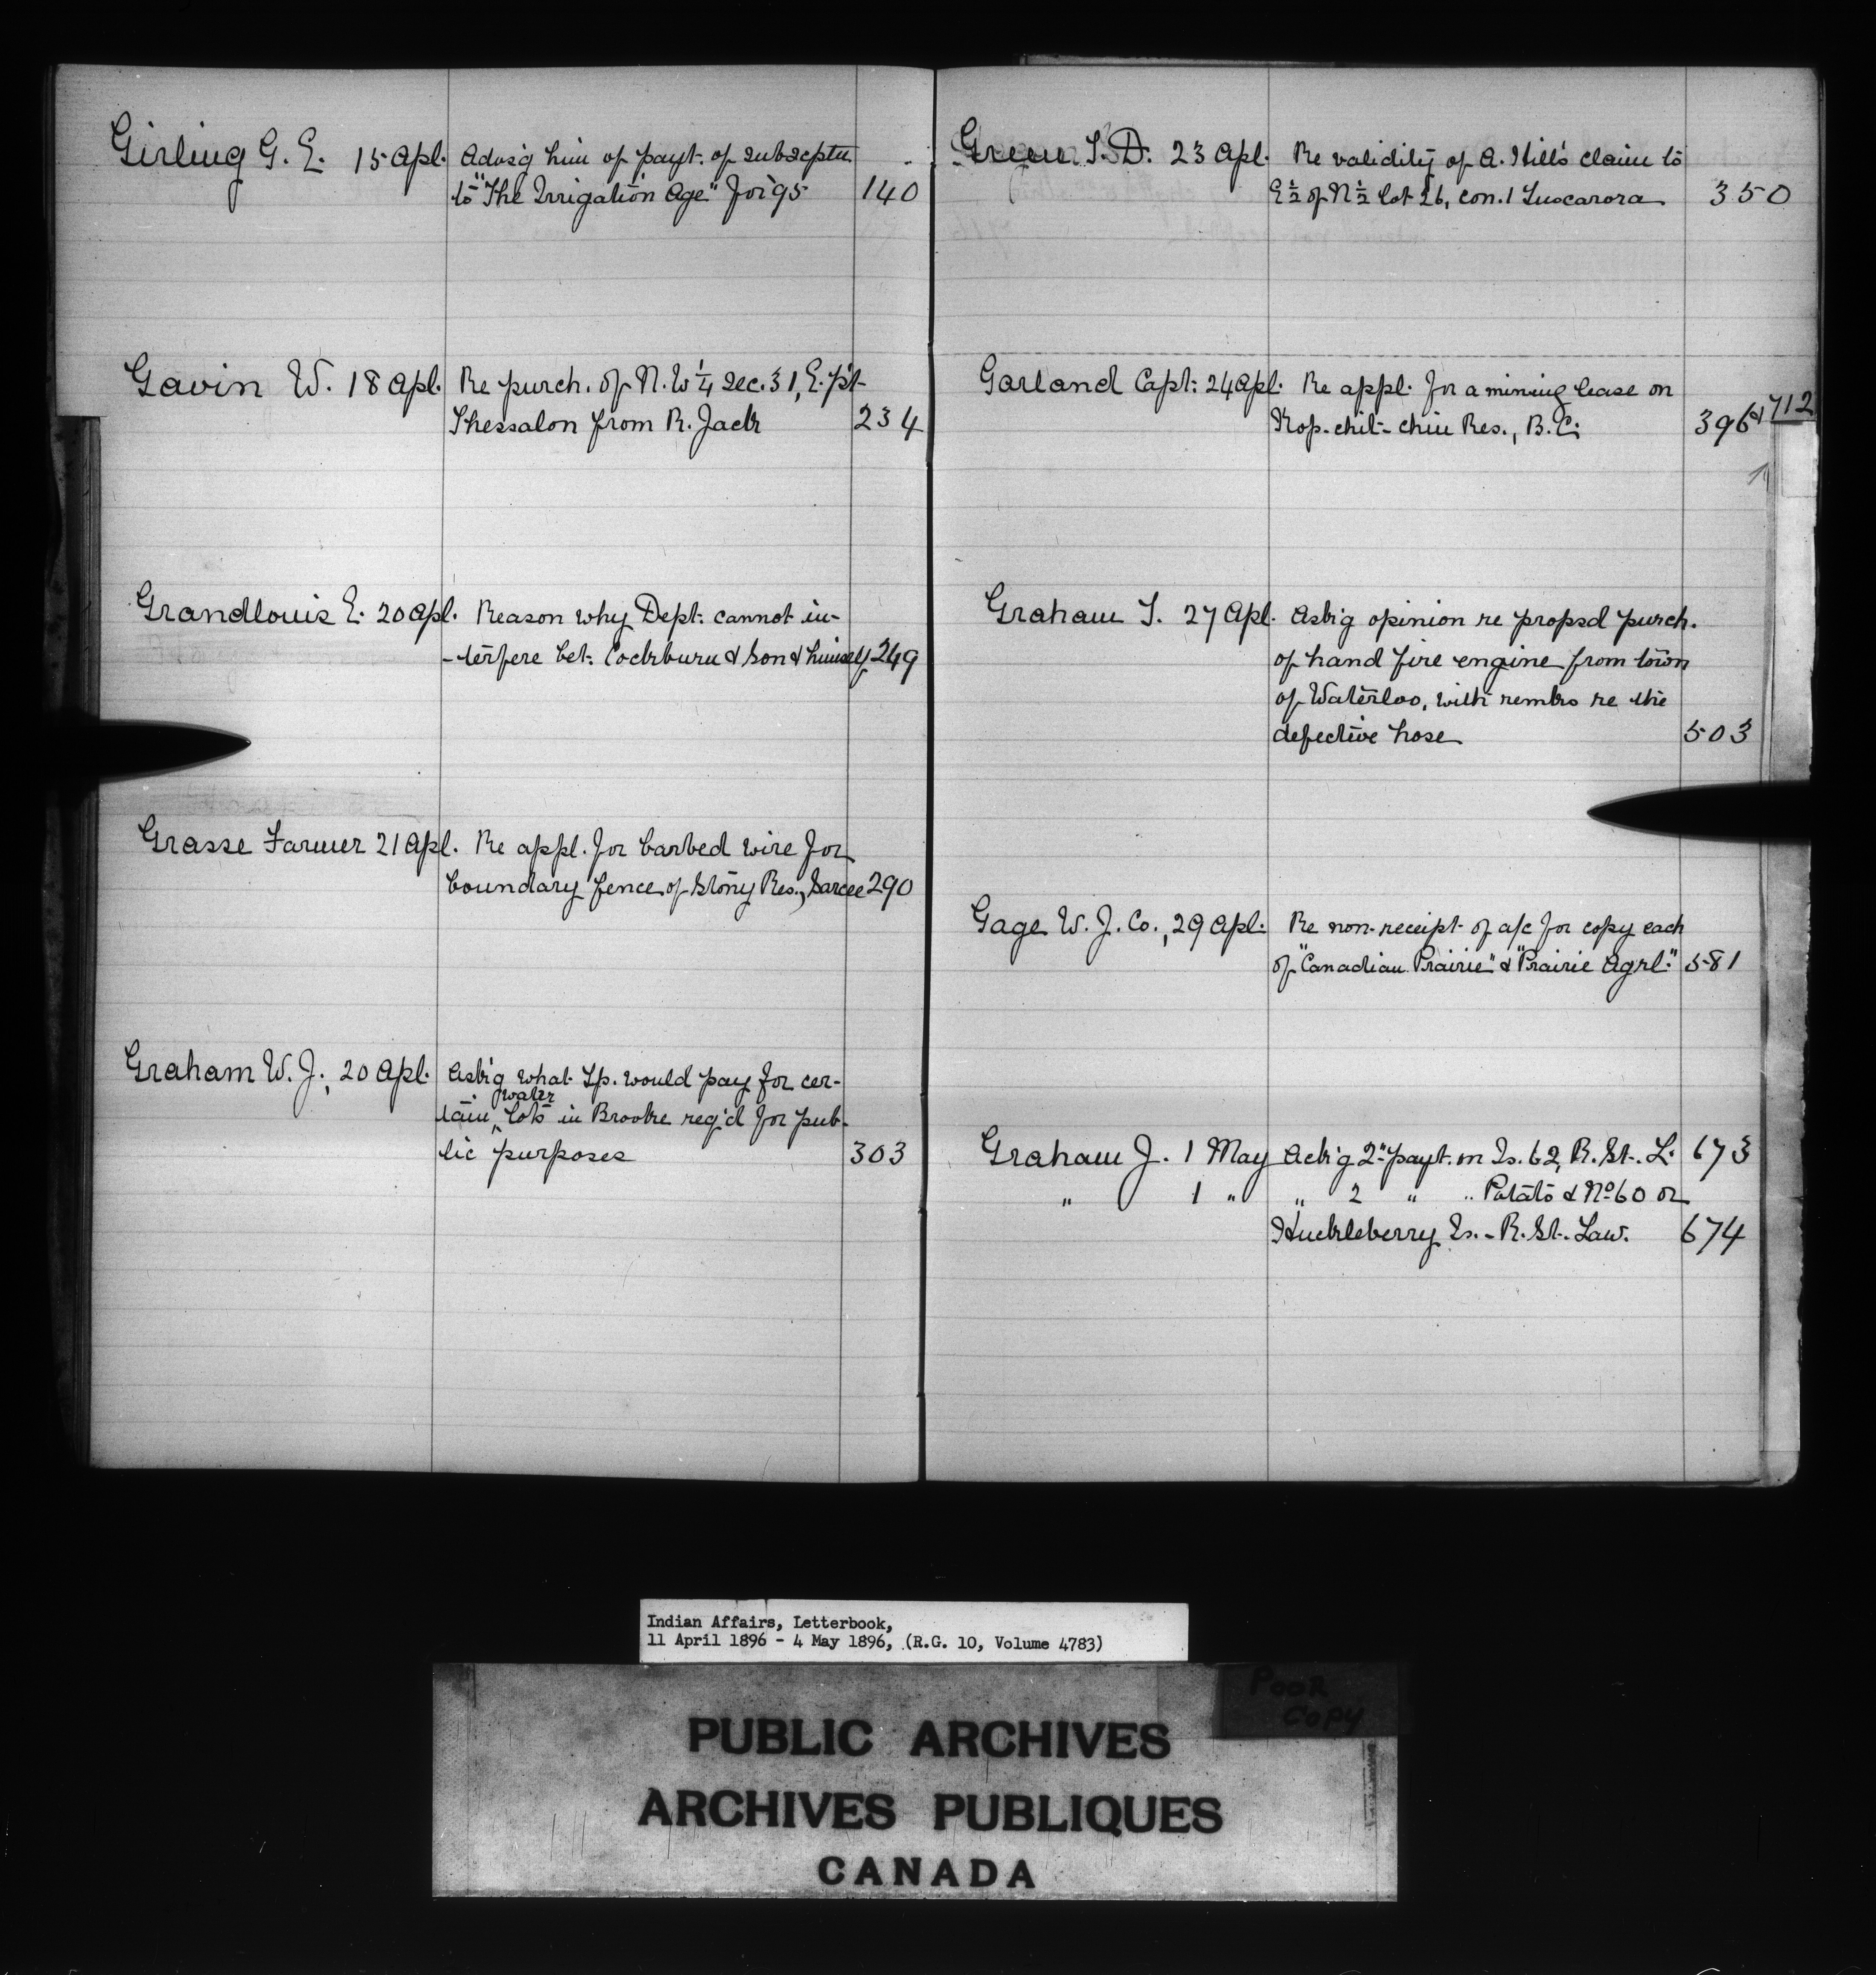 Girling G. E. 15 Apl. Advsg him of payt. of subscptn
to "The Irrigation Age" for '95 140
Gavin W. 18 Apl. Re purch. of N.W 1/4 Sec. 31, E. pt
Thessalon from R. Jack 234
Grandlouis E. 20 Apl. Reason why Dept. cannot in-
-terfere bet. Cockburn & Son & himself 249
Grasse Farmer 21 Apl. Re appl. for barbed wire for
boundary fence of Stony Res., Sarcee 290
Graham W. J., 20 Apl. Ask'g what Tp. would pay for cer-
water
tain ‸ lots in Brooke req'd for pub-
lic purposes 303
Green T. D. 23 Apl. Re validity of A. Hill's claim to
E ½ of N ½ lot 26, con. 1 Tuscarora 350
Garland Capt. 24 Apl. Re appl. for a mining lease on
Kop-chit-chin Res., B.C. 396 & 712
Graham T. 27 Apl. Ask'g opinion re propsd purch.
of hand fire engine from town
of Waterloo, with remks re the
defective hose 503
Gage W. J. Co., 29 Apl. Re non-receipt of a/c for copy each
of "Canadian Prairie" & "Prairie Agrl." 581
Graham J. 1 May Ack'g 2" payt. on Is. 62, R. St. L. 673
" 1 " " 2 " " Potato & No 60 or
Huckleberry Is. - R. St. Law. 674
Indian Affairs, Letterbook,
11 April 1896 - 4 May 1896, (R.G. 10, Volume 4783)
POOR
COPY
PUBLIC ARCHIVES
ARCHIVES PUBLIQUES
CANADA